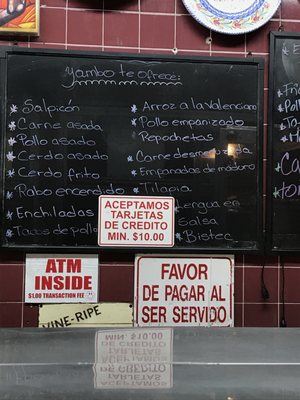 Yambo te ofrece:
* Salpicón
* Carne asada
* Pollo asado
* Cerdo asado
* Cerdo frito
* Rabo encendido
* Enchiladas
* Tacos de pollo
* Arroz a la Valenciana
* Pollo empanizado
* Repochetas
* Carne desmenuzada
* Empanadas de maduro
* Tilapia
* Lengua en
salsa
* Bistec
ACEPTAMOS
TARJETAS
DE CREDITO
MIN. $10.00
ATM
INSIDE
$1.00 TRANSACTION FEE
FAVOR
DE PAGAR AL
SER SERVIDO
VINE-RIPE